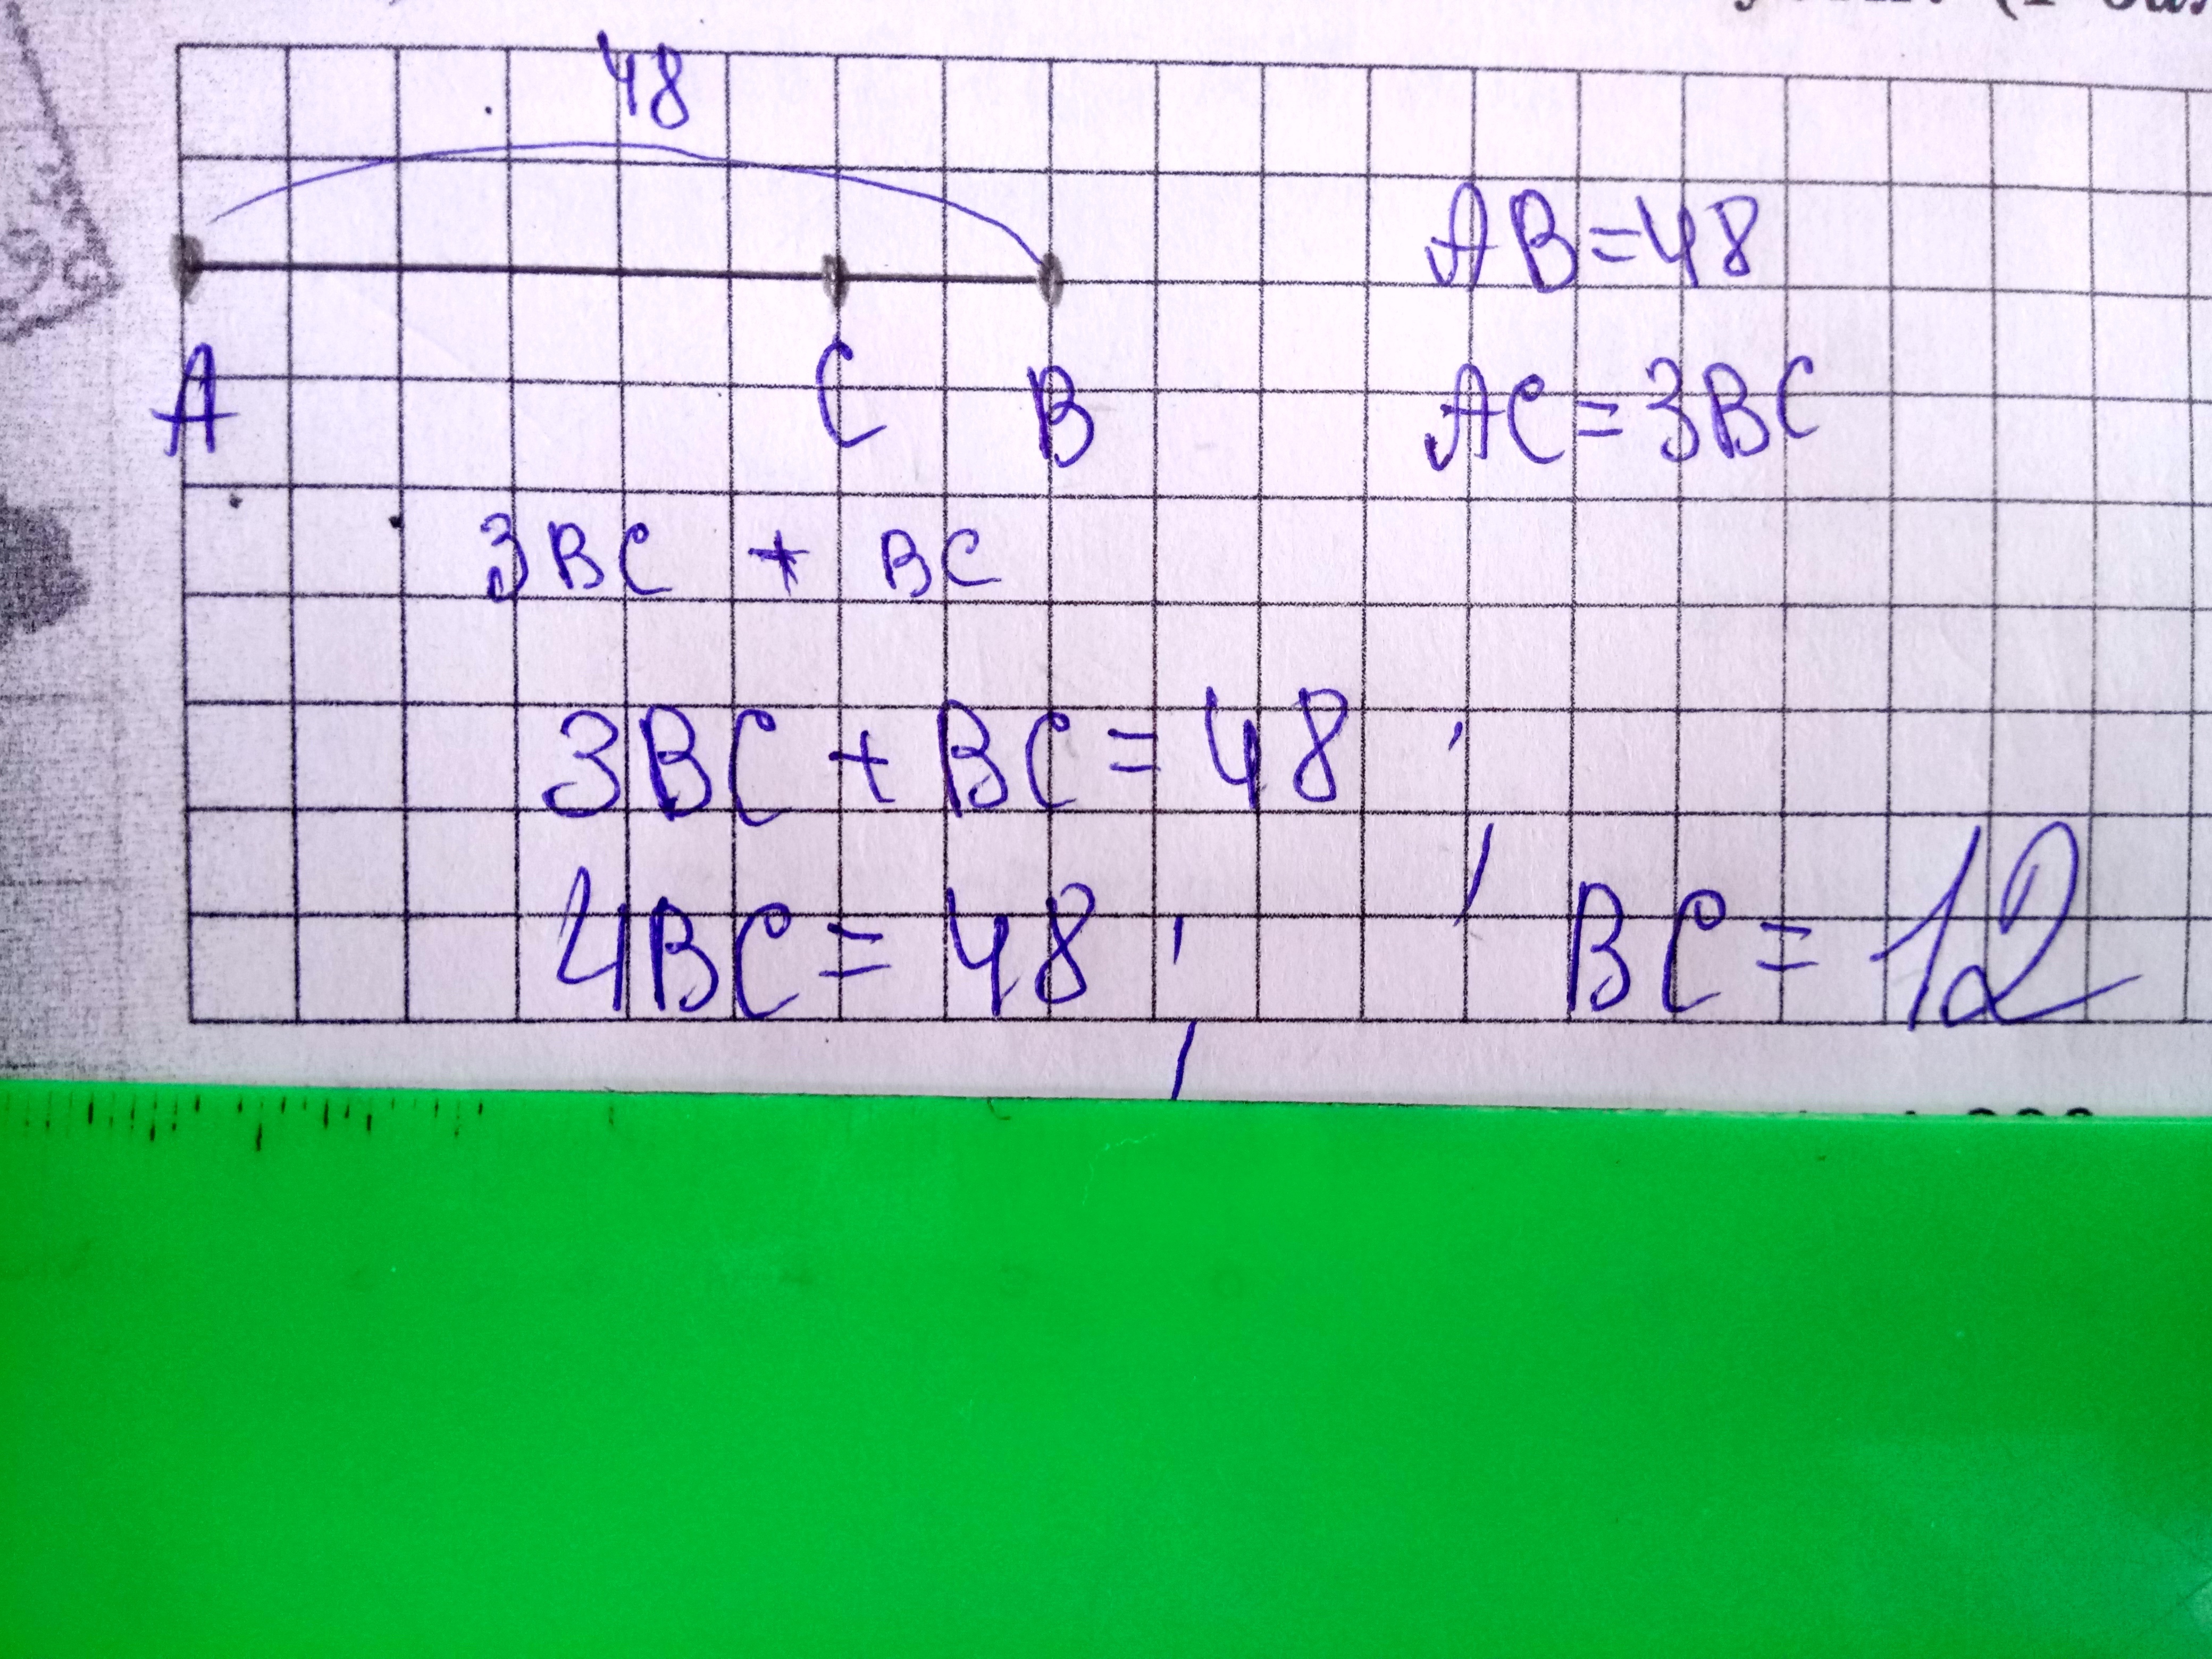 48
AB=48
A C B
AC=3BC
3BC + BC
3BC+BC=48
4BC=48, BC=12